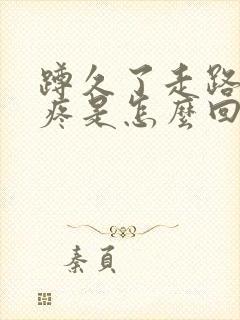 蹲久了走路
疼是怎麼回
秦頁